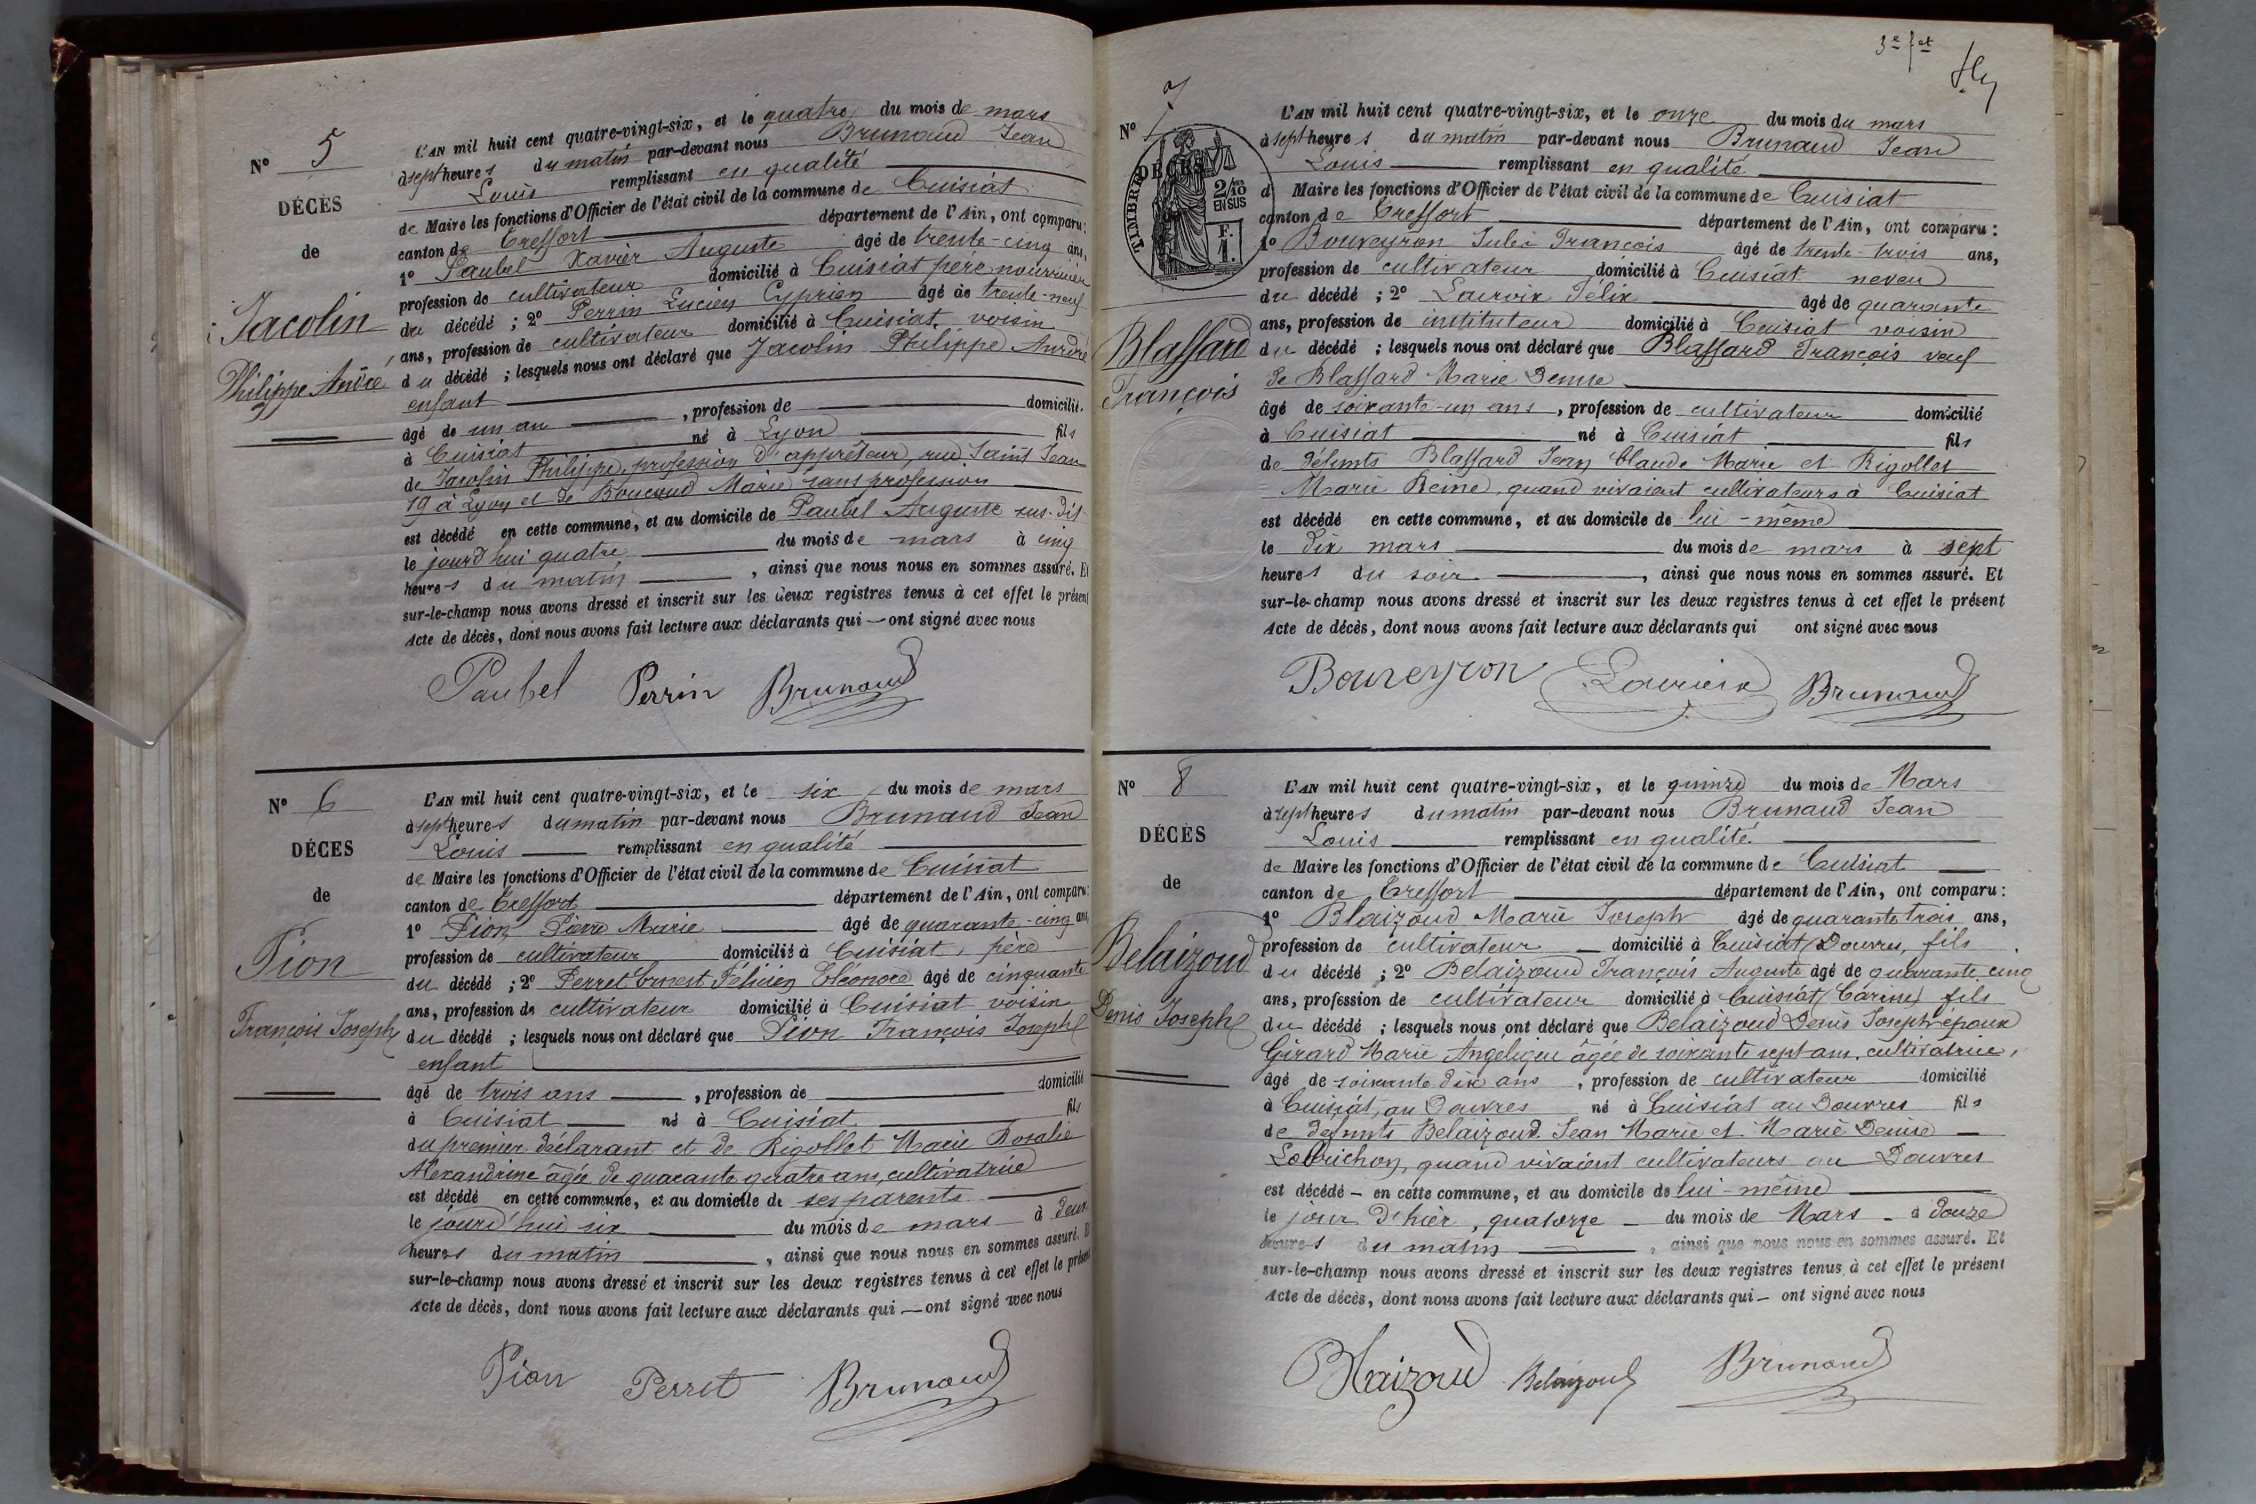 N° 5
DÉCÈS
de
Jacolin
Philippe André
L'AN mil huit cent quatre-vingt-six, et le quatre du mois de mars
à sept heures du matin par-devant nous Brunaud Jean
Louis remplissant en qualité
de Maire les fonctions d'Officier de l'état civil de la commune de Cuisiat
canton de Treffort département de l'Ain, ont comparu:
1° Paubel Xavier Auguste âgé de trente-cinq ans,
profession de cultivateur domicilié à Cuisiat père nourricier
du décédé ; 2° Perrin Lucien Cyprien âgé de trente-neuf
ans, profession de cultivateur domicilié à Cuisiat voisin
du décédé ; lesquels nous ont déclaré que Jacolin Philippe André
enfant
âgé de un an , profession de domicilié
à Cuisiat né à Lyon fils
de Jacolin Philippe, profession d'apprêteur, rue Saint Jean
19 à Lyon et de Boucaud Marie sans profession
est décédé en cette commune, et au domicile de Paubel Auguste sus-dit
le jourd'hui quatre du mois de mars à cinq
heures du matin , ainsi que nous nous en sommes assuré. Et
sur-le-champ nous avons dressé et inscrit sur les deux registres tenus à cet effet le présent
Acte de décès, dont nous avons fait lecture aux déclarants qui — ont signé avec nous
Paubel Perrin Brunaud
N° 6
DÉCES
de
Pion
François Joseph
L'AN mil huit cent quatre-vingt-six, et le six du mois de mars
à sept heures du matin par-devant nous Brunaud Jean
Louis remplissant en qualité
de Maire les fonctions d'Officier de l'état civil de la commune de Cuisiat
canton de Treffort département de l'Ain, ont comparu:
1° Pion Pierre Marie âgé de quarante-cinq ans
profession de cultivateur domicilié à Cuisiat, père
du décédé ; 2° Perret Ernest Félicien Eléonore âgé de cinquante
ans, profession de cultivateur domicilié à Cuisiat voisin
du décédé ; lesquels nous ont déclaré que Pion François Joseph
enfant
âgé de trois ans , profession de domicilié
à Cuisiat né à Cuisiat fils
du premier déclarant et de Rigollet Marie Rosalie
Alexandrine âgée de quarante quatre ans, cultivatrice
est décédé en cette commune, et au domicile de ses parents
le jourd'hui six du mois de mars à deux
heures du matin , ainsi que nous nous en sommes assuré. Et
sur-le-champ nous avons dressé et inscrit sur les deux registres tenus à cet effet le présent
Acte de décès, dont nous avons fait lecture aux déclarants qui — ont signé avec nous
Pion Perret Brunaud
3e fet
N° 7
DÉCÈS
TIMBRE
2/10 EN SUS
F. 1.
Blaffard
François
L'AN mil huit cent quatre-vingt-six, et le onze du mois du mars
à sept heures du matin par-devant nous Brunaud Jean
Louis remplissant en qualité
d Maire les fonctions d'Officier de l'état civil de la commune de Cuisiat
canton de Treffort département de l'Ain, ont comparu :
1° Bouveyron Jules François âgé de trente-trois ans,
profession de cultivateur domicilié à Cuisiat neveu
du décédé ; 2° Lacroix Félix âgé de quarante
ans, profession de instituteur domicilié à Cuisiat voisin
du décédé ; lesquels nous ont déclaré que Blaffard François veuf
de Blaffard Marie Denise
âgé de soixante-un ans , profession de cultivateur domicilié
à Cuisiat né à Cuisiat fils
de défunts Blaffard Jean Claude Marie et Rigollet
Marie Reine, quand vivaient cultivateurs à Cuisiat
est décédé en cette commune, et au domicile de lui-même
le dix mars du mois de mars à sept
heures du soir , ainsi que nous nous en sommes assuré. Et
sur-le-champ nous avons dressé et inscrit sur les deux registres tenus à cet effet le présent
Acte de décès, dont nous avons fait lecture aux déclarants qui ont signé avec nous
Bouveyron Lacroix Brunaud
N° 8
DÉCÈS
de
Belaizoud
Denis Joseph
L'AN mil huit cent quatre-vingt-six, et le quinze du mois de Mars
à sept heures du matin par-devant nous Brunaud Jean
Louis remplissant en qualité
de Maire les fonctions d'Officier de l'état civil de la commune de Cuisiat
canton de Treffort département de l'Ain, ont comparu :
1° Blaizoud Marie Joseph âgé de quarante trois ans,
profession de cultivateur domicilié à Cuisiat, Douvres, fils
du décédé ; 2° Belaizoud François Auguste âgé de quarante cinq
ans, profession de cultivateur domicilié à Cuisiat fils
du décédé ; lesquels nous ont déclaré que Belaizoud Denis Joseph époux
Girard Marie Angélique âgée de soixante sept ans, cultivatrice,
âgé de soixante dix ans , profession de cultivateur domicilié
à Cuisiat, au Douvres né à Cuisiat au Douvres fils
de défunts Belaizoud Jean Marie et Marie Denise
quand vivaient cultivateurs au Douvres
est décédé – en cette commune, et au domicile de lui-même
le jour d'hier, quatorze du mois de Mars à douze
heures du matin , ainsi que nous nous en sommes assuré. Et
sur-le-champ nous avons dressé et inscrit sur les deux registres tenus à cet effet le présent
Acte de décès, dont nous avons fait lecture aux déclarants qui – ont signé avec nous
Blaizoud Belaizoud Brunaud